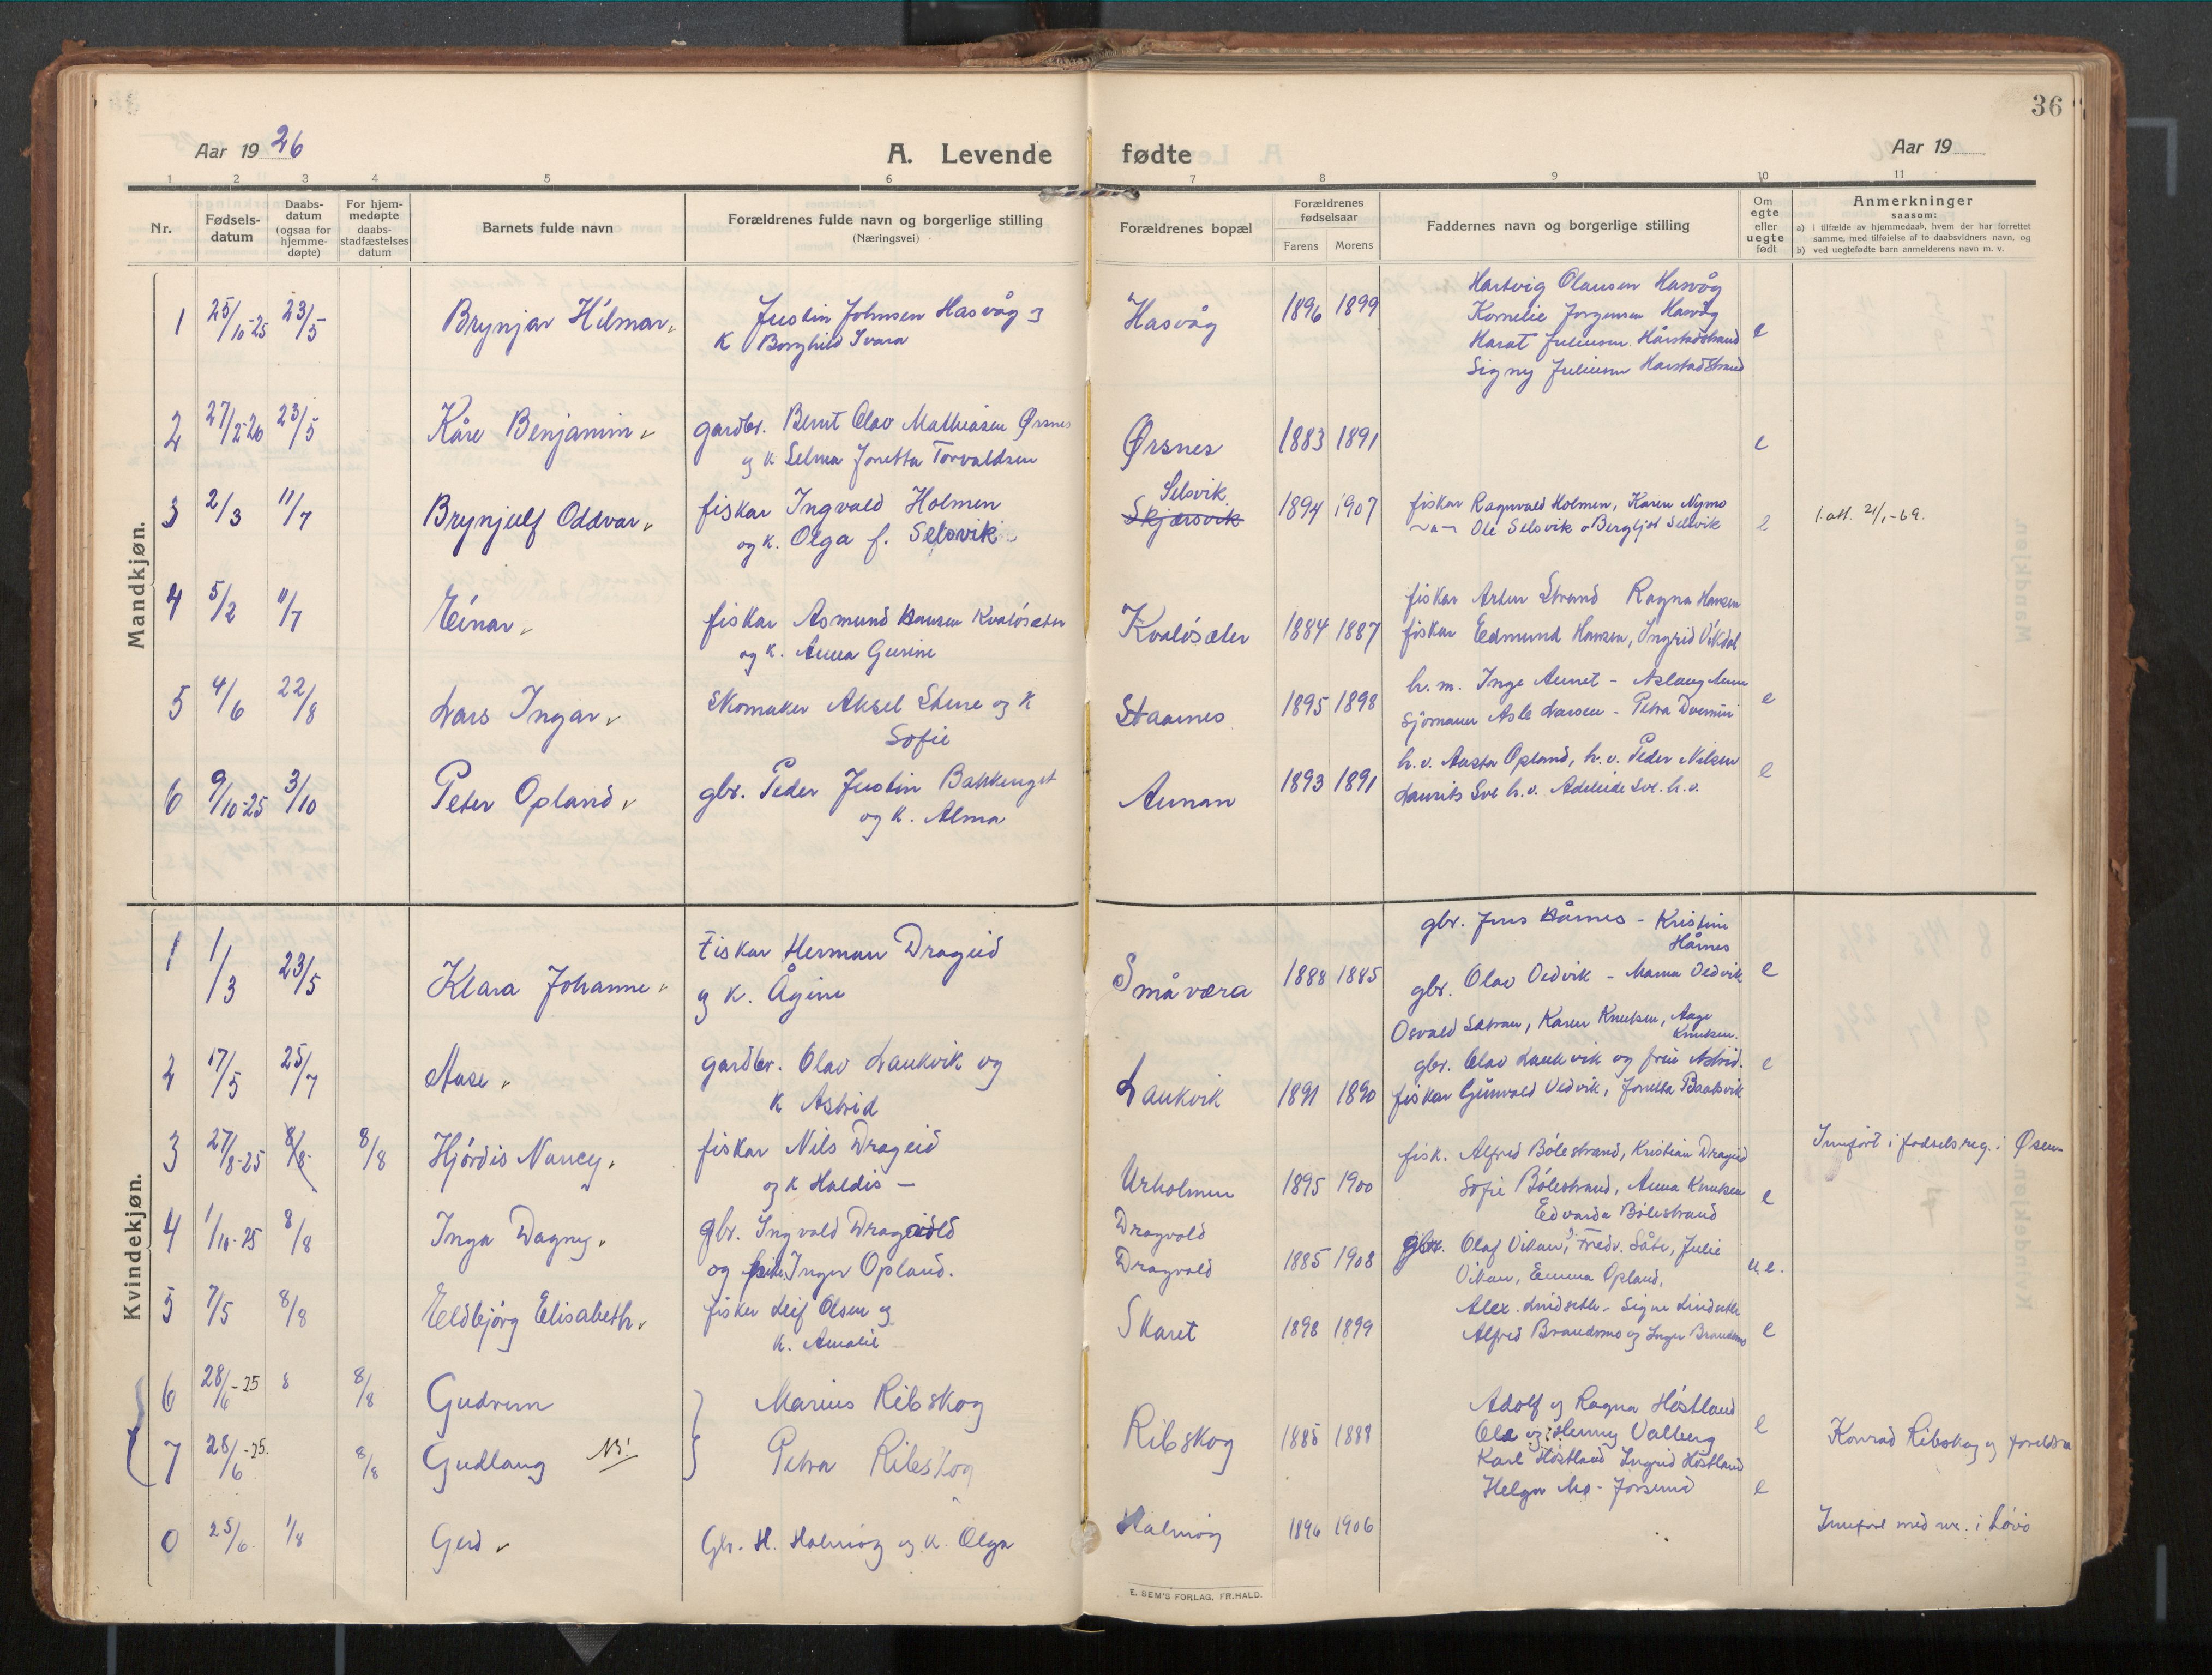 36
Aar 1926
A. Levende fødte
Aar 19
1 2 3 4 5 6 7 8 9 10 11
Nr.
Fødsels-
datum
Daabs-
datum
(ogsaa for
hjemme-
døpte)
For hjem-
medøpte
daabs-
stadfæstelses
datum
Barnets fulde navn
Forældrenes fulde navn og borgerlige stilling
(Næringsvei)
Forældrenes bopæl
Forældrenes
fødselsaar
Farens Morens
Faddernes navn og borgerlige stilling
Om
egte
eller
uegte
født
Anmerkninger
saasom:
a) i tilfælde av hjemmedaab, hvem der har forrettet
samme, med tilføielse af to daabsvidners navn, og
b) ved uegtefødte barn anmelderens navn m. v.
Mandkjøn.
1 25/10-25 23/5 Brynjar Hilmar
Justin Johnsen Hasvåg
K Borghild Ivara
Hasvåg 1896 1899
Hartvig Olausen Hasvåg
Kornelie Jorgensen Hasvåg
Harat Juliussen Hårstadstrand
Signy Juliussen Harstadstrand
e
2 27/2-26 23/5 Kåre Benjamin
gardbr. Bernt Olav Mathiasen Ørsnes
og K Selma Jonetta Torvaldsen
Ørsnes 1883 1891 e
3 2/3 11/7 Brynjulf Oddvar
fiskar Ingvald Holmen
og K. Olga f. Selsvik
Selsvik
Skjærsvik 1894 1907
fiskar Ragnvald Holmen, Karen Nymo
Ole Selsvik o Bergljot Selsvik
e
1. att. 21/1-69.
4 5/2 11/7 Einar
fiskar Asmund Hansen Kvalósæter
og K. Anna Gurine
Kvalósæter 1884 1887
fiskar Artur Strand Ragna Hansen
fiskar Edmund Hansen, Ingrid Vikdal
5 4/6 22/8 Lars Ingar
Skomaker Aksel Stene og K
Sofie
Staarnes 1895 1898
h. m. Inge Aunet - Aslaug Aune
Sjömann Asle Larsen - Petra
e
6 9/10-25 3/10 Peter Opland
gbr. Peder Justin Bakkenget
og K. Alma
Aunan 1893 1891
h.v. Aasta Opland, h.v. Peder Nilsen
Laurits Sve h.v. Adeleide Sve. h.v.
e
Kvindekjøn.
1 1/3 23/5 Klara Johanne
Fiskar Herman Drageid
og K. Ågine
Småværa 1888 1885
gbr. Jens Hårnes - Kristine
Hårnes
gbr. Olav Vedvik - Marna Vedvik
Osvald Sætran, Karen Knutsen, Aage
Knutsen.
e
2 17/5 25/7 Aase
gardbr. Olav Laukvik og
K Astrid
Laukvik 1891 1890
gbr. Olav Laukvik og frue Astrid.
fiskar Gunvald Vedvik, Jonetta Baatsvik
e
3 27/8-25 8/8 8/8 Hjórdis Nancy
fiskar Nils Drageid
og K Haldis
Urholmen 1895 1900
fisk. Alfred Bólestrand, Kristian Drageid
Sofie Bólestrand, Anna Knutsen
Edvarda Bólestrand
e
Innfört i fødselsreg. i Øsen
4 1/10-25 8/8 Inga Dagny
gbr. Ingvald Dragvold
og Inger Opland.
Dragvold
Dragvold 1885 1908
gbr. Olaf Vikan, Fredr. Såte, Julie
Vikan, Emma Opland,
u.e.
5 7/5 8/8 Eldbjórg Elisabeth
fisker Leif Olsen og
K. Amalie
Skaret 1898 1899
Alex. Lindseth - Signe Lindseth
Alfred Brandsmo og Inger Brandsmo
e
6 28/6-25 8 8/8 Gudrun
7 28/6-25. 8/8 Gudlaug NB!
Marius Ribskog
Petra Ribskog
Ribskog 1885 1888
Adolf og Ragna Hóstland
Ola og Henny Valberg
Karl Hóstland Ingrid Hóstland
Helga Mo - Jorsund
e
e
Konrad Ribskog og foreldra
0 25/6 1/8 Gerd
Gbr. H. Halmóy og K. Olga
Halmóy 1896 1906
Innført med nr. i Lóvó
E. SEM'S FORLAG, FR.HALD.